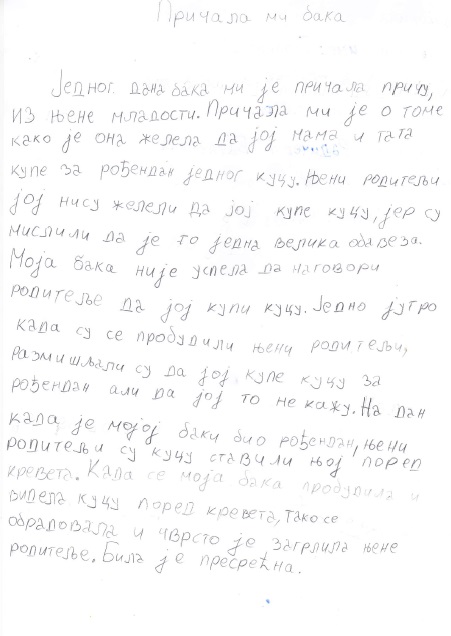 Причала ми бака
Једног дана бака ми је причала причу,
из њене младости. Причала ми је о томе
како је она желела да јој мама и тата
купе за рођендан једног куцу. Њени родитељи
јој нису желели да јој купе куцу, јер су
мислили да је то једна велика обавеза.
Моја бака није успела да наговори
родитеље да јој купи куцу. Једно јутро
када су се пробудили њени родитељи,
размишљали су да јој купе куцу за
рођендан али да јој то не кажу. На дан
када је мојој баки био рођендан, њени
родитељи су куцу ставили њој поред
кревета. Када се моја бака пробудила и
видела куцу поред кревета, тако се
обрадовала и чврсто је загрлила њене
родитеље. Била је пресрећна.